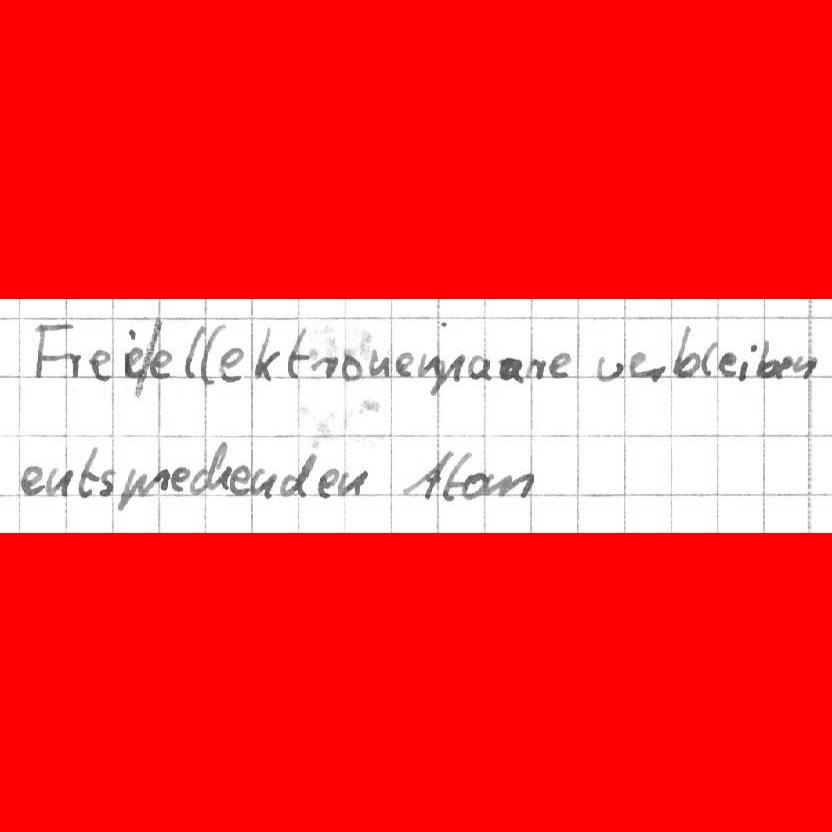 Freie/ellektronenpaare verbleiben
entsprechenden Atom